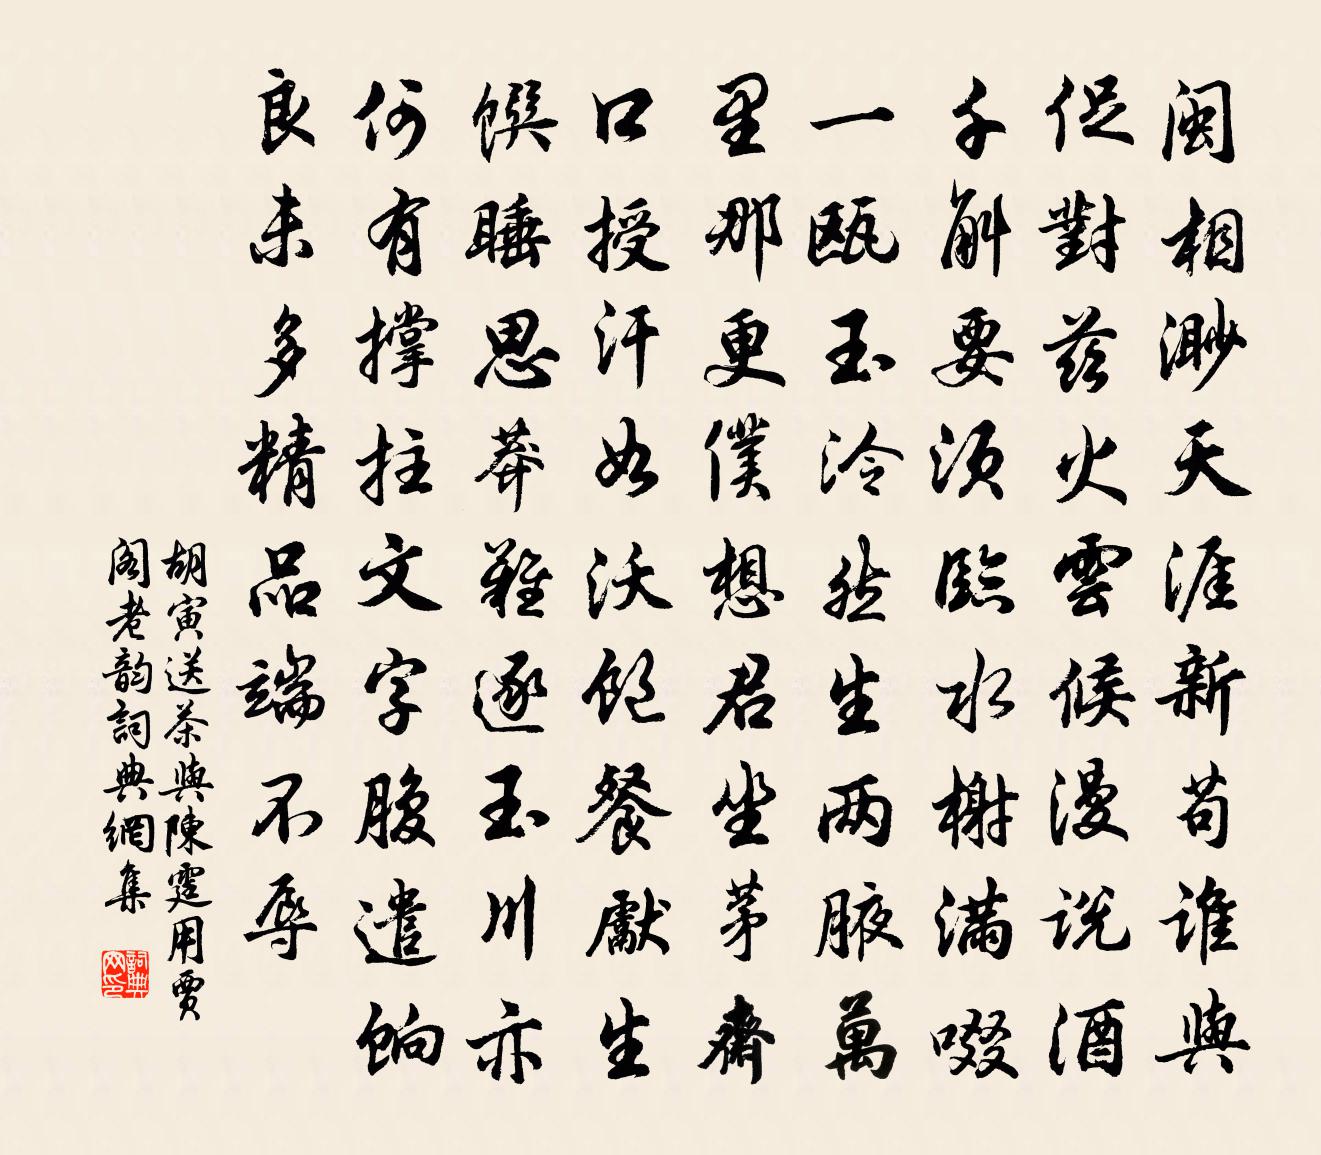 闽相渺天涯新苟谁與
促對茲火雲候漫说酒
千斛要須臨水榭满啜
一瓯玉泠然生两腋萬
里那更僕想君坐茅齋
口授汗如沃飽餐獻生
饌睡思莽難逐玉川亦
何有撐拄文字腹遣餉
良未多精品端不辱
胡寅送茶與陳霆用賈
阁老韵詞典網集
詞典网印